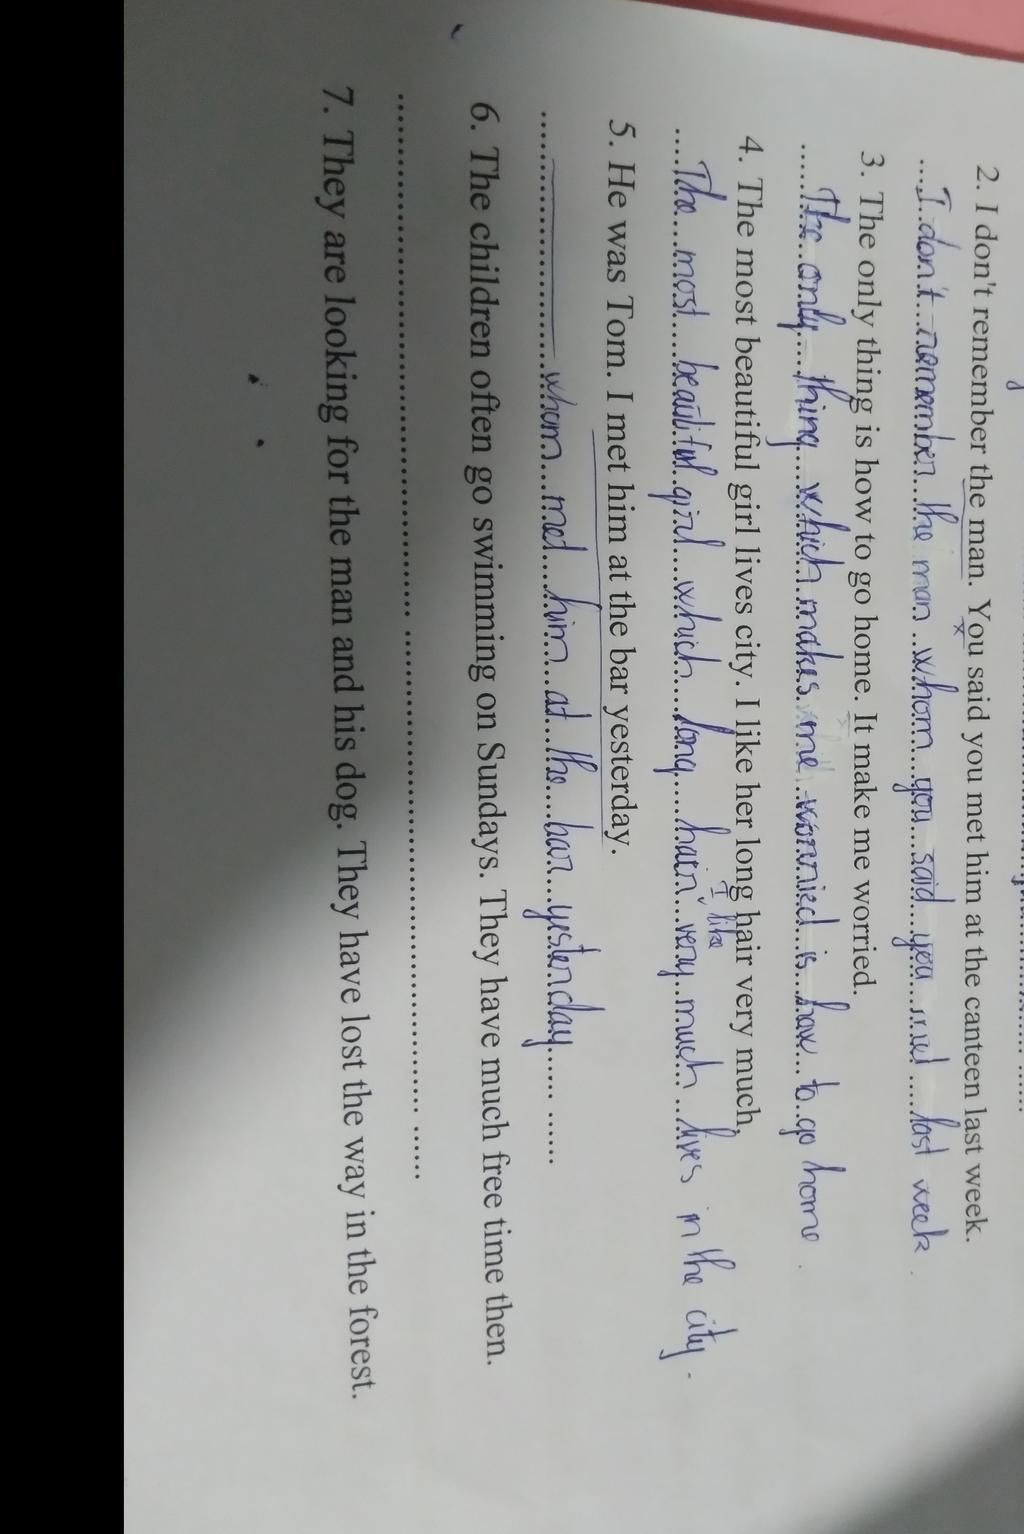 2. I don't remember the man. You said you met him at the canteen last week.
I don't remember the man whom you said you met last week.
3. The only thing is how to go home. It make me worried.
The only thing which makes me worried is how to go home.
4. The most beautiful girl lives city. I like her long hair very much,
I like
The most beautiful girl which long hair very much lives in the city.
5. He was Tom. I met him at the bar yesterday.
whom met him at the bar yesterday
6. The children often go swimming on Sundays. They have much free time then.
7. They are looking for the man and his dog. They have lost the way in the forest.